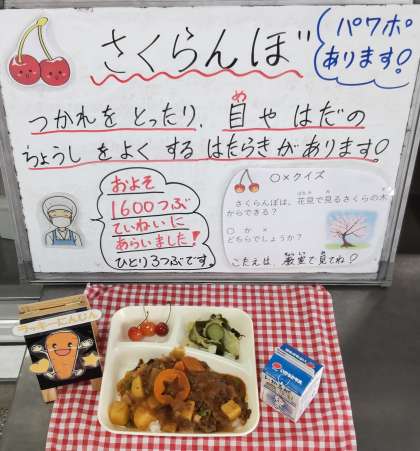 さくらんぼ
パワポ
あります!
つかれを とったり、目や はだの
め
ちょうし を よく する はたらき が あります!
およそ
1600つぶ
ていねいに
あらいました!
ひとり3つぶです。
○×クイズ
さくらんぼは、花見で見るさくらの木
からできる?
○ か ×
どちらでしょうか?
こたえは、教室で見てね!
ラッキーにんじん